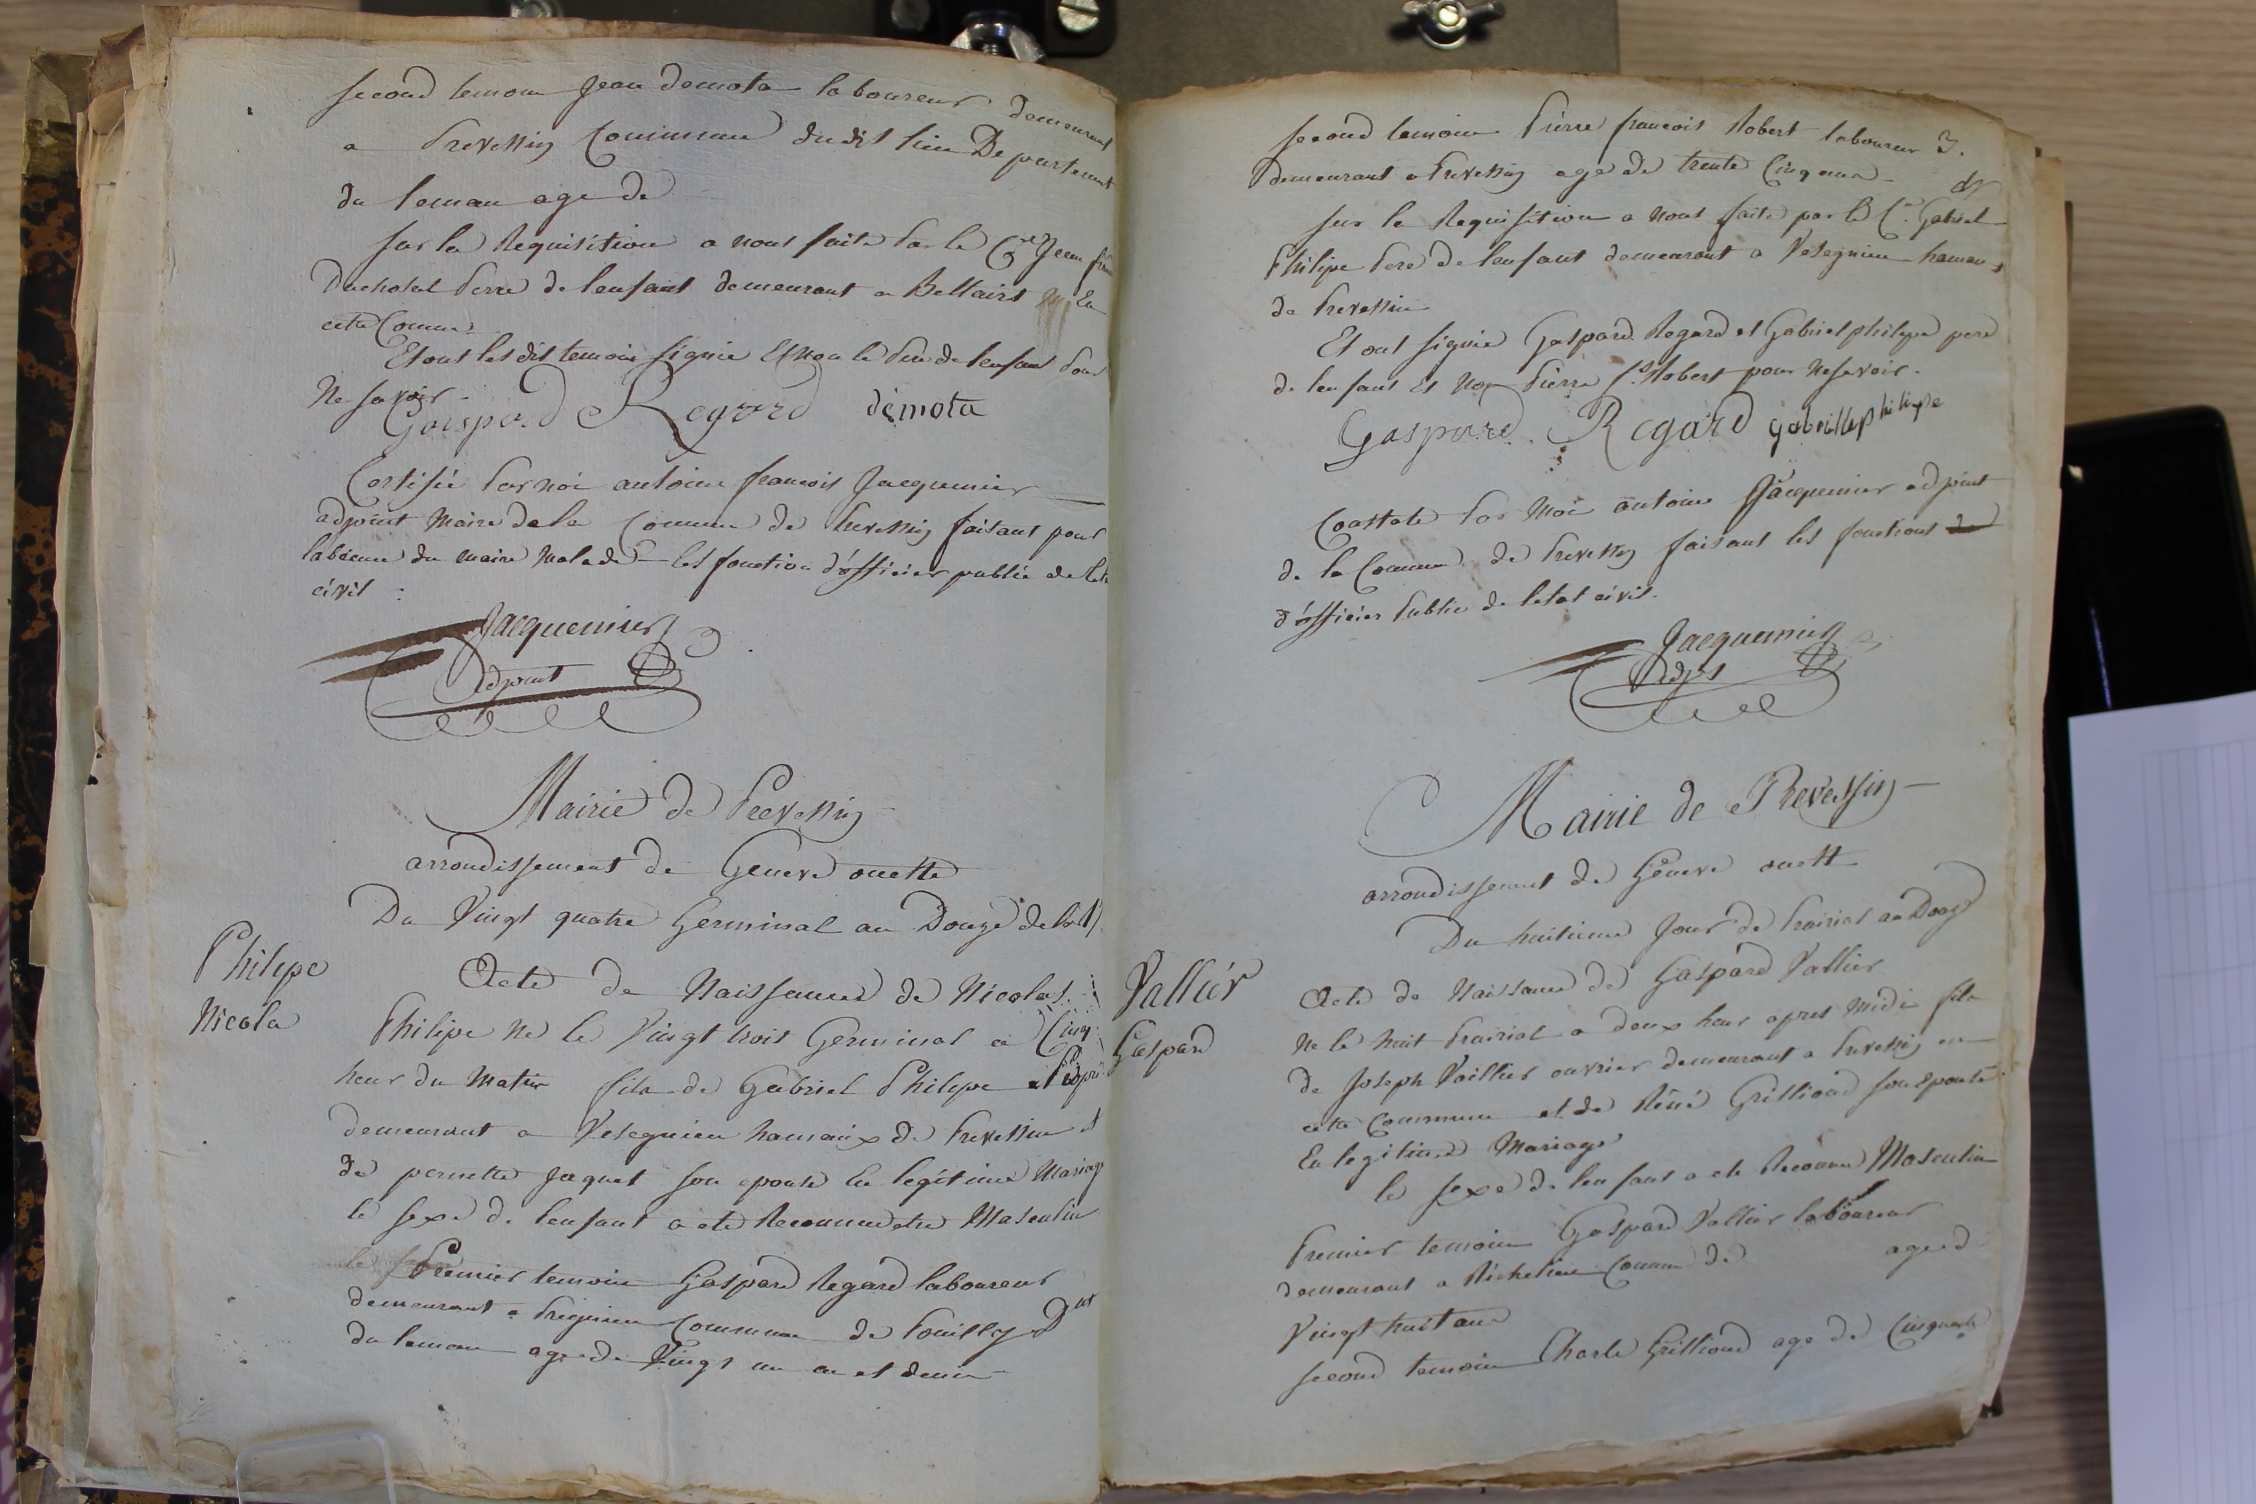 second temoin Jean demota laboureur demeurant
a Prevessin Commune dudit lieu Departement
du leman age de
sur la Requisition a nous faite par le Cen Jean
pere de lenfant demeurant a En
cette Comune
Et ont les dit temoin signié et non le pere de lenfant pour
Ne savoir
Gaspard Regard demota
Certifié par moi antoine francois Jacquemier
adjoint Maire de la Commune de Prevessin faisant pour
labcence du maire Malade les fonction d'officier public de letat
civil
Jacquemier
adjoint
Mairie de Prevessin
arrondissement de Geneve ouette
Du Vingt quatre Germinal an Douze de la
Philipe
Nicola
Acte de Naissance de Nicolas
Philipe ne le Vingt trois Germinal a Cinq
heur du Matin fils de Gabriel Philipe
demeurant a Vesegnien hamaux de Prevessin et
de pernette Jaquet son epouse en legitime Mariage
le sexe de lenfant a ete Reconnu etre Masculin
Premier temoin Gaspard Regard laboureur
demeurant a Commune de Pouilly Dnt
du leman age de Vingt un an et demi
3.
second temoin Pierre francois Robert laboureur
demeurant a Prevessin age de trente Cinq ans
sur la Requisition a nous faite par le Cen Gabriel
Philipe Pere de lenfant demeurant a Vesegnien hameau
de Prevessin
Et ont signié Gaspard Regard et Gabriel philipe pere
de lenfant et Non Pierre fs Robert pour Ne savoir.
Gaspard Regard gabriellephilipe
Constaté Par Moi antoine Jacquemier adjoint
de la Commune de Prevessin faisant les fonctions de
d'officier Public de letat civil.
Jacquemier
Adjt
Mairie de Prevessin
arrondissement de Géneve ouett
Du huitieme Jour de Prairial an Douze
Vallier
Gaspard
Acte de Naissance de Gaspard Vallier
Ne le huit Prairial a deux heur apres Midi fils
de Joseph Vallier ouvrier demeurant a Prevessin en
cette Commune et de Réné Grilliond son epouse
En legitime Mariage
le sexe de lenfant a ete Reconnu Masculin
Premier temoin Gaspard Vallier laboureur
demeurant a Richelien Comune de age d
Vingt huit ans
second temoin Charle Grilliond age de Cinquante